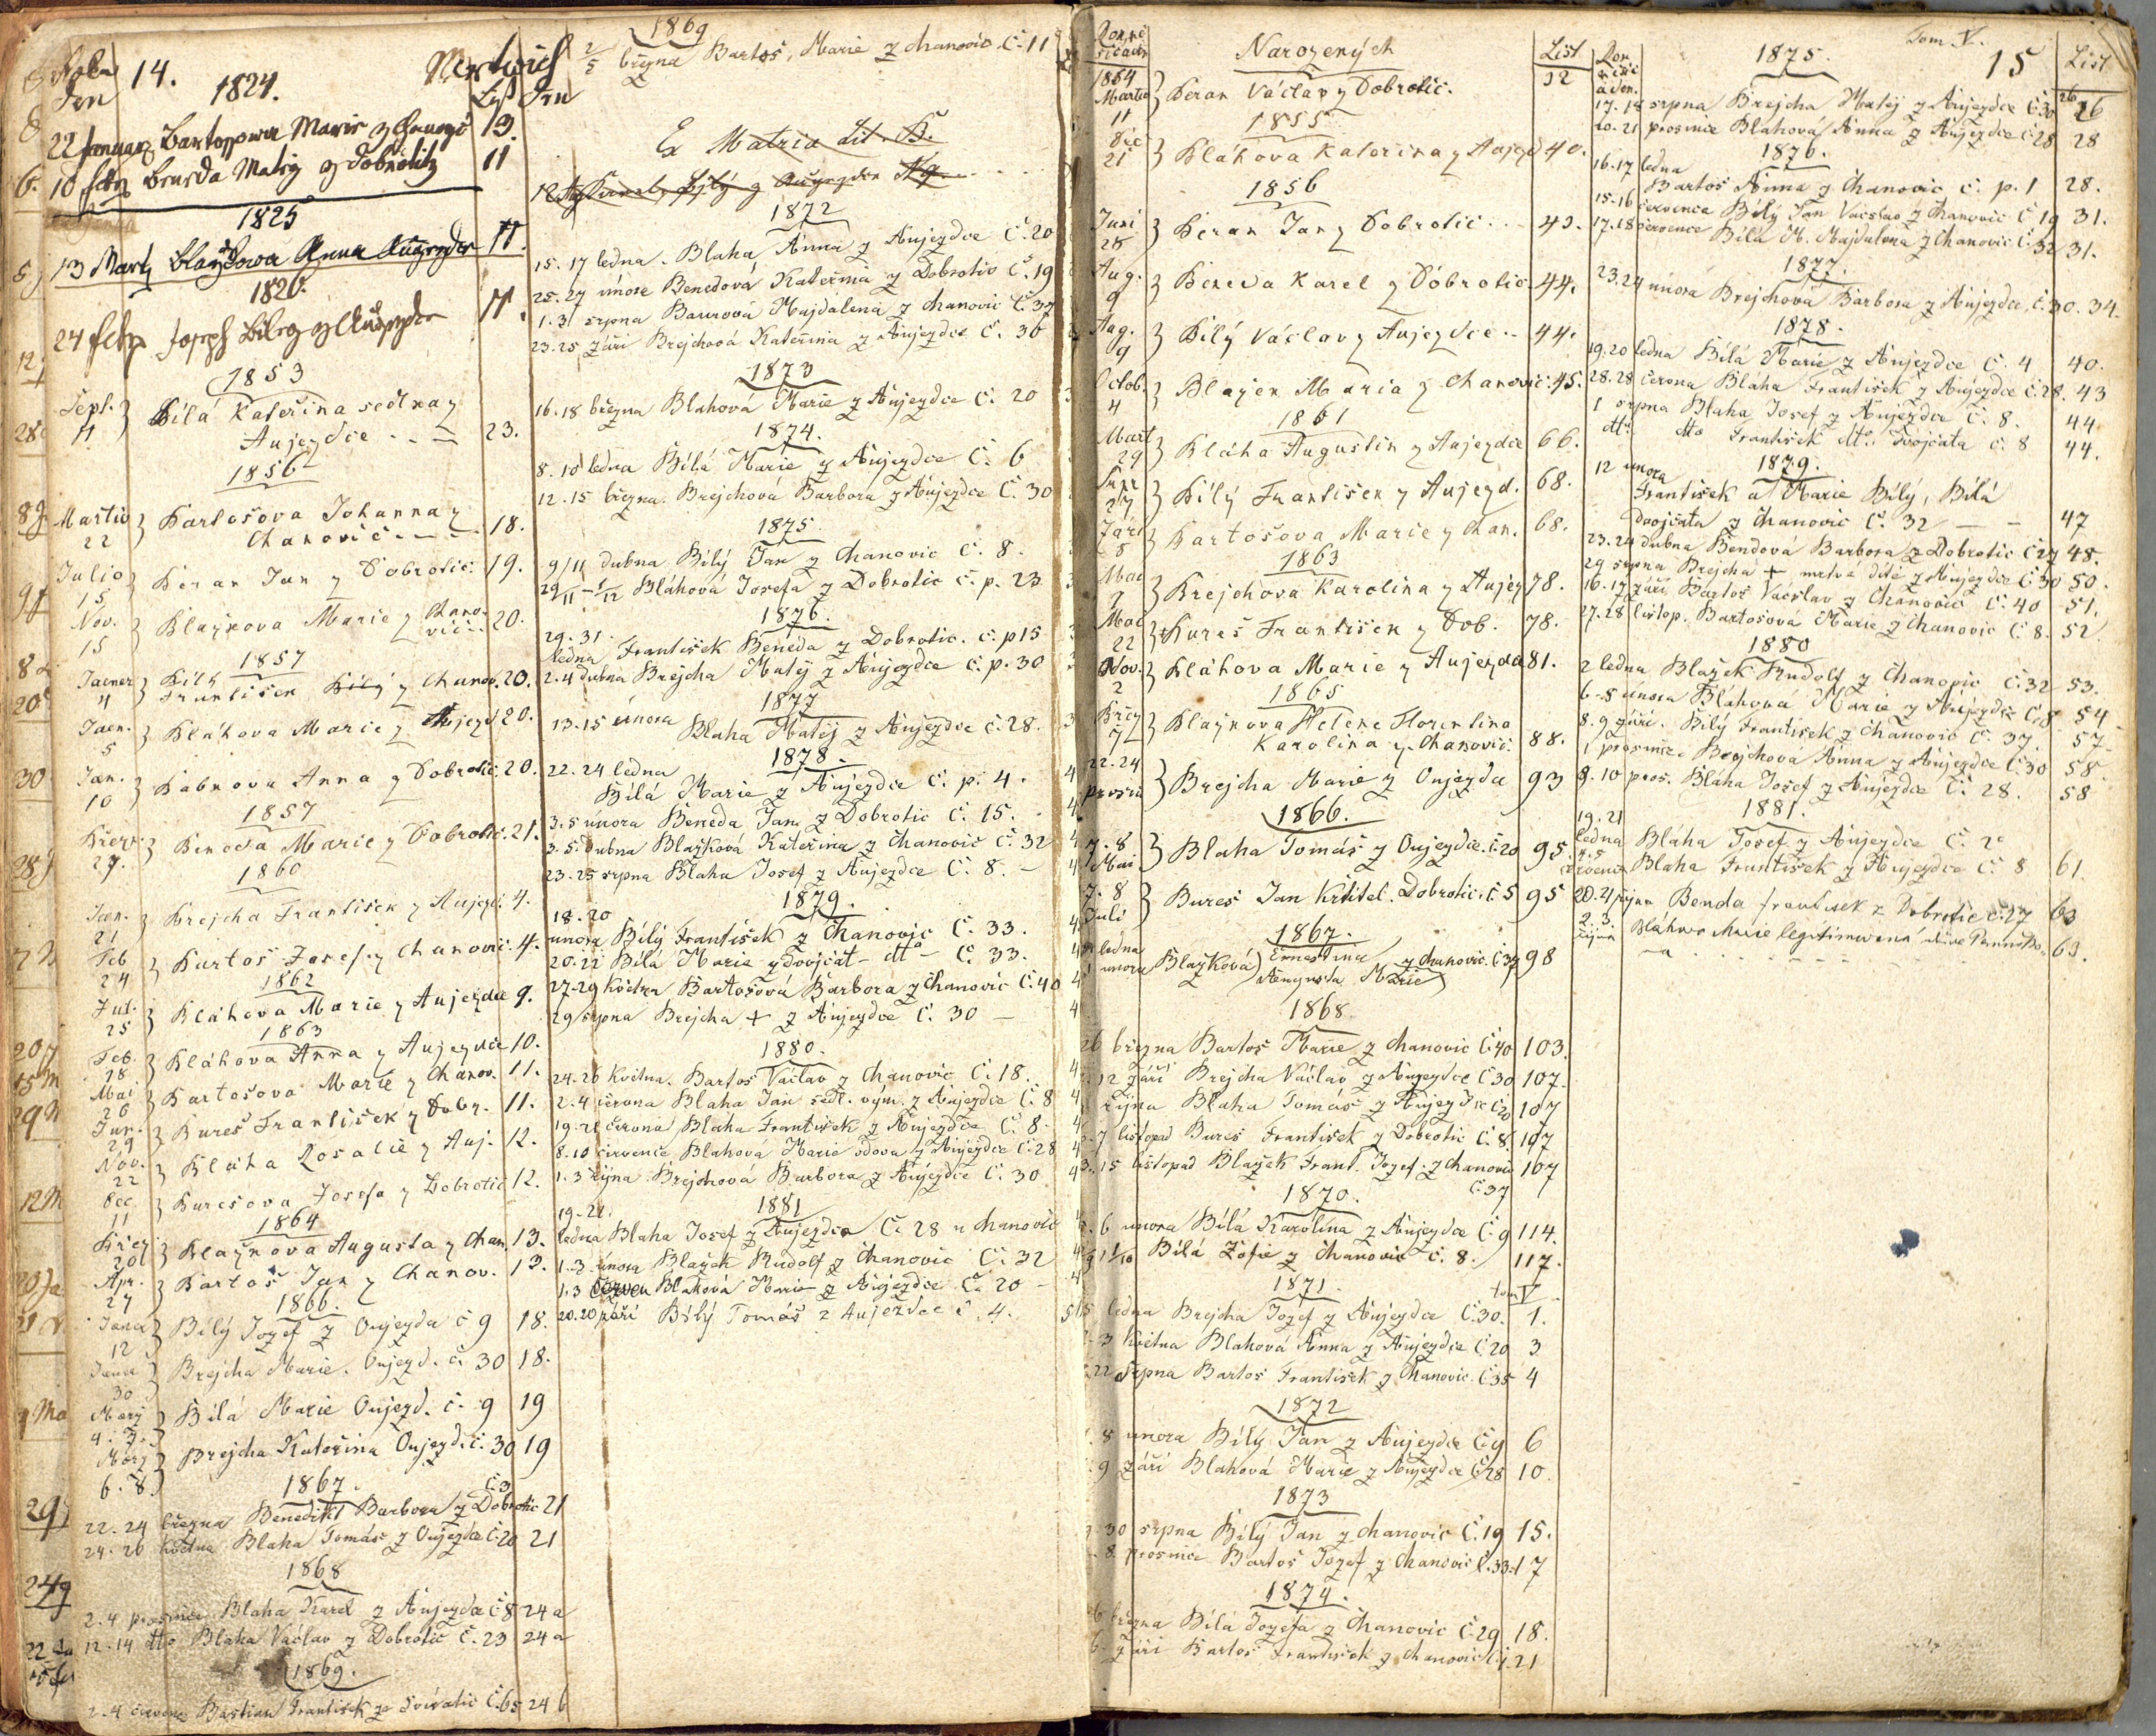 14.
1824.
22 Januarz Bartossowa Marie z 13.
10 Benesda Matieg z Dobrotitz 11
1825
13 Marty Anna 11.
1826.
24 Joseph Bileg z 11.
1853
Sept. 11 } Bílá Kateřina sedlka z
Aujezdce 23.
1856
Martio 22 } Bartošova Johanna z
Chanovic 18.
Julio 15 } Beran Jan z Dobrotic. 19.
Nov. 15 } Blazkova Marie z Chano-
vic 20.
1857
Jaener 4 } František Bílý z Chanov. 20.
Jaen. 5 } Bláhova Marie z Aujezd 20.
Jan. 10 } Anna z Dobrotic. 20.
1857
27. } Beneda Marie z Dobrotic. 21.
1860
Jaen. 21 } Brejcha František z Aujezd. 4.
Feb 24 } Bartoš Josef z Chanovic. 4.
1862
Jul. 25 } Bláhova Marie z Aujezdce 9.
1863
Feb. 28 } Bláhova Anna z Aujezdce 10.
Mai 26 } Bartošova Marie z Chanov. 11.
Jun. 29 } Bureš František z Dobr. 11.
Nov. 22 } Bláha Rosalie z Auj. 12.
Dec 11 } Burešova Josefa z Dobrotic 12.
1864
20 } Blazkova Augusta z Chan. 13.
Apr. 27 } Bartoš Jan z Chanov. 13.
1866.
12 } Bílý Jozef z Oujezda č 9 18.
30 } Brejcha Marie. Oujezd. č. 30 18.
4. 7. } Bílá Marie Oujezd. č. 9 19
6. 8. } Brejcha Kateřina Oujezd. č. 30 19
1867. č. 3
22. 24 března Benedikt Barbora z Dobrotic 21
24. 26 května Blaha Tomáš z Oujezda č. 20 21
1868
2. 4 prosince Blaha Karel z Aujezda č 8 24 a
12. 14 dto Blaha Václav z Dobrotic č. 23 24 a
1869.
2. 4 Bastian František ze č. 65 24 b
1869
2/5 března Bartoš, Marie z Chanovic č. 11
Ex Matrica Lit. B.
1872
15. 17 ledna. Blaha Anna z Aujezdce č. 20
25. 27 února Benedová Kateřina z Dobrotic č. 19
1. 3 srpna Baurová Majdalena z Chanovic č. 37
23. 25 září Brejchová Kateřina z Aujezdce č. 30
1873
16. 18 března Blahová Marie z Aujezdce č. 20
1874.
8. 10 ledna Bílá Marie z Aujezdce č. 6
12. 15 března. Brejchová Barbora z Aujezdce č. 30
1875.
9/11 dubna Bílý Jan z Chanovic č. 8.
29/11 - 1/12 Bláhová Josefa z Dobrotic č. p. 23
1876.
29. 31.
ledna František Beneda z Dobrotic. č. p 15
2. 4 dubna Brejcha Matěj z Aujezdce č. p. 30
1877
13. 15 února Blaha Matěj z Aujezdce č. 28.
1878.
22. 24 ledna
Bílá Marie z Aujezdce č. p. 4.
3. 5 února Beneda Jan z Dobrotic č. 15.
3. 5. dubna Blažková Kateřina z Chanovic č. 32
23. 25 srpna Blaha Josef z Aujezdce č. 8. —
1879.
18. 20
února Bílý František z Chanovic č. 33.
20. 22 Bílá Marie z dvojčat - dto - č. 33.
27-29 května Bartošová Barbora z Chanovic č. 40
29 srpna Brejcha + z Aujezdce č. 30 —
1880.
24. 26 května. Bartoš Václav z Chanovic č. 18.
2. 4 června Blaha Jan sedl. vým. z Aujezdce č. 8
19. 21 června Blaha František z Aujezdce č. 8.
8. 10 července Blahová Marie vdova z Aujezdce č. 28
1. 3 října Brejchová Barbora z Aujezdce č. 30
1881
19-21.
ledna Blaha Josef z Aujezdce č. 28 u Chanovic
1. 3 února Blažek Rudolf z Chanovic č. 32
1. 3 Bláhová Marie z Aujezdce č. 20 -
20. 20 září Bílý Tomáš z Aujezdce č. 4.
Narozených List
1854
Martio 11 } Beran Václav z Dobrotic. 32
1855
Dec 21 } Bláhova Kateřina z Aujezd 40.
1856
Juni 28 } Beran Jan z Dobrotic 43.
Aug. 9 } Beneda Karel z Dobrotic. 44.
Aug. 9 } Bílý Václav z Aujezdce 44.
Octob. 4 } Blazek Maria z Chanovic. 45.
1861
Mart 29 } Bláha Augustin z Aujezdce 66.
27 } Bílý František z Aujezd. 68.
Září 8 } Bartošova Marie z Chan. 68.
1863
Mai 7 } Brejchova Karolina z Aujez 78.
Mai 22 } Bureš František z Dob. 78.
Nov. 2 } Bláhova Marie z Aujezda 81.
1865
7 } Blazkova Helene Florentina
Karolina z Chanovic. 88.
22. 24
prosin } Brejcha Marie z Oujezda 93
1866.
7. 8
Mai } Blaha Tomáš z Oujezdce. č. 20 95
7. 8
Juli } Bureš Jan Křtitel. Dobrotic. č. 5 95
1867.
ledna
února Blazková } Ernestina
Augusta Marie } z Chanovic. č. 37 98
1868.
26 března Bartoš Marie z Chanovic č. 40 103.
12 září Brejcha Václav z Aujezdce č 30 107.
října Blaha Tomáš z Aujezdce č 20 107
7 listopad Bureš František z Dobrotic č. 8. 107
15 listopad Blažek Frant. Jozef. z Chanovic 107
č. 37
1870.
6 února Bílá Karolina z Aujezda č. 9 114.
11/10 Bílá Žofie z Chanovic č. 8. 117.
1871. tom V
ledna Brejcha Jozef z Aujezdce č. 30. 1.
3 května Blahová Anna z Aujezdce č. 20 3
22 srpna Bartoš František z Chanovic. č. 35 4
1872
8 února Bílý Jan z Aujezdce č. 9 6
9 září Blahová Marie z Aujezdce č. 28 10.
1873
30 srpna Bílý Jan z Chanovic č. 19 15.
8. prosince Bartoš Jozef z Chanovic č. 33. 17
1874.
března Bílá Jozefa z Chanovic č. 29 18.
září Bartoš František z Chanovic 21
Tom V.
1875. 15 List
17. 18 srpna Brejcha Matěj z Aujezdce č. 30 26
20. 21 prosince Bláhová Anna z Aujezdce č. 28 28
1876.
16. 17 ledna
Bartoš Anna z Chanovic č. p. 1 28.
15-16 července Bílý Jan Václav z Chanovic č 19 31.
17. 18 července Bílá M. Majdalena z Chanovic č. 32 31.
1877.
23. 24 února Brejchová Barbora z Aujezdce, č. 30. 34.
1878.
19. 20 ledna Bílá Marie z Aujezdce č. 4 40.
28. 28 června Bláha František z Aujezdce č. 28. 43
1 srpna Blaha Josef z Aujezdce č. 8. 44
dto. dto František dto. dvojčata č. 8 44.
1879.
12 února
František a Marie Bílý, Bílá
dvojčata z Chanovic č. 32 — - 47
23. 24 dubna Bendová Barbora z Dobrotic č 27 48.
29 srpna Brejcha + mrtvé dítě z Aujezdce č 30 50.
16. 17 září Bartoš Václav z Chanovic č. 40 51.
27. 28 listop. Bartošová Marie z Chanovic č 8. 52.
1880
2 ledna Blažek Rudolf z Chanovic č. 32 53.
6-8 února Bláhová Marie z Aujezdce č. 8 54
8. 9 září. Bílý František z Chanovic č. 37. 57
1 prosince Brejchová Anna z Aujezdce č. 30 58.
9. 10 pros. Bláha Josef z Aujezdce č. 28. 58
1881.
19. 21
ledna Bláha Josef z Aujezdce č.
4. 5
července Blaha František z Aujezdce č. 8 61.
20. 21 října Benda František z Dobrotic č. 27 63
2. 3.
října Bláhova Marie legitimovaná 63.